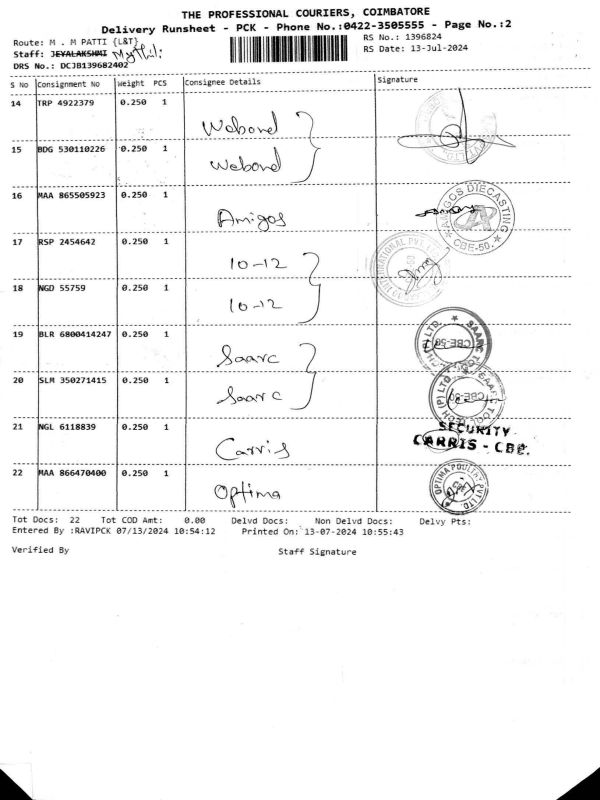 THE PROFESSIONAL COURIERS, COIMBATORE
Delivery Runsheet - PCK - Phone No.:0422-3505555 - Page No.:2
Route: M . M PATTI {L&T}
RS No.: 1396824
Staff: JEYALAKSHMI Mythili
RS Date: 13-Jul-2024
DRS No.: DCJB139682402
S No Consignment No Weight PCS Consignee Details Signature
14 TRP 4922379 0.250 1 Webond
15 BDG 530110226 0.250 1 Webond
16 MAA 865505923 0.250 1 Amigos
AMIGOS DIECASTING
★ CBE-50. ★
17 RSP 2454642 0.250 1 10-12
18 NGD 55759 0.250 1 10-12
19 BLR 6800414247 0.250 1 Saarc
20 SLM 350271415 0.250 1 Saarc
21 NGL 6118839 0.250 1 Carris
SECURITY
CARRIS - CBE.
22 MAA 866470400 0.250 1 Optima
OPTIMA POULTRY PVT LTD.
Tot Docs: 22 Tot COD Amt: 0.00 Delvd Docs: Non Delvd Docs: Delvy Pts:
Entered By :RAVIPCK 07/13/2024 10:54:12 Printed On: 13-07-2024 10:55:43
Verified By Staff Signature